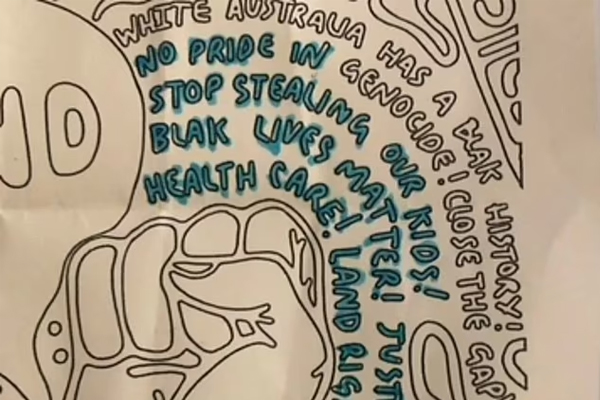 WHITE AUSTRALIA HAS A BLAK HISTORY!
NO PRIDE IN GENOCIDE! CLOSE THE GAP!
STOP STEALING OUR KIDS!
BLAK LIVES MATTER! JUST
HEALTH CARE! LAND RIG